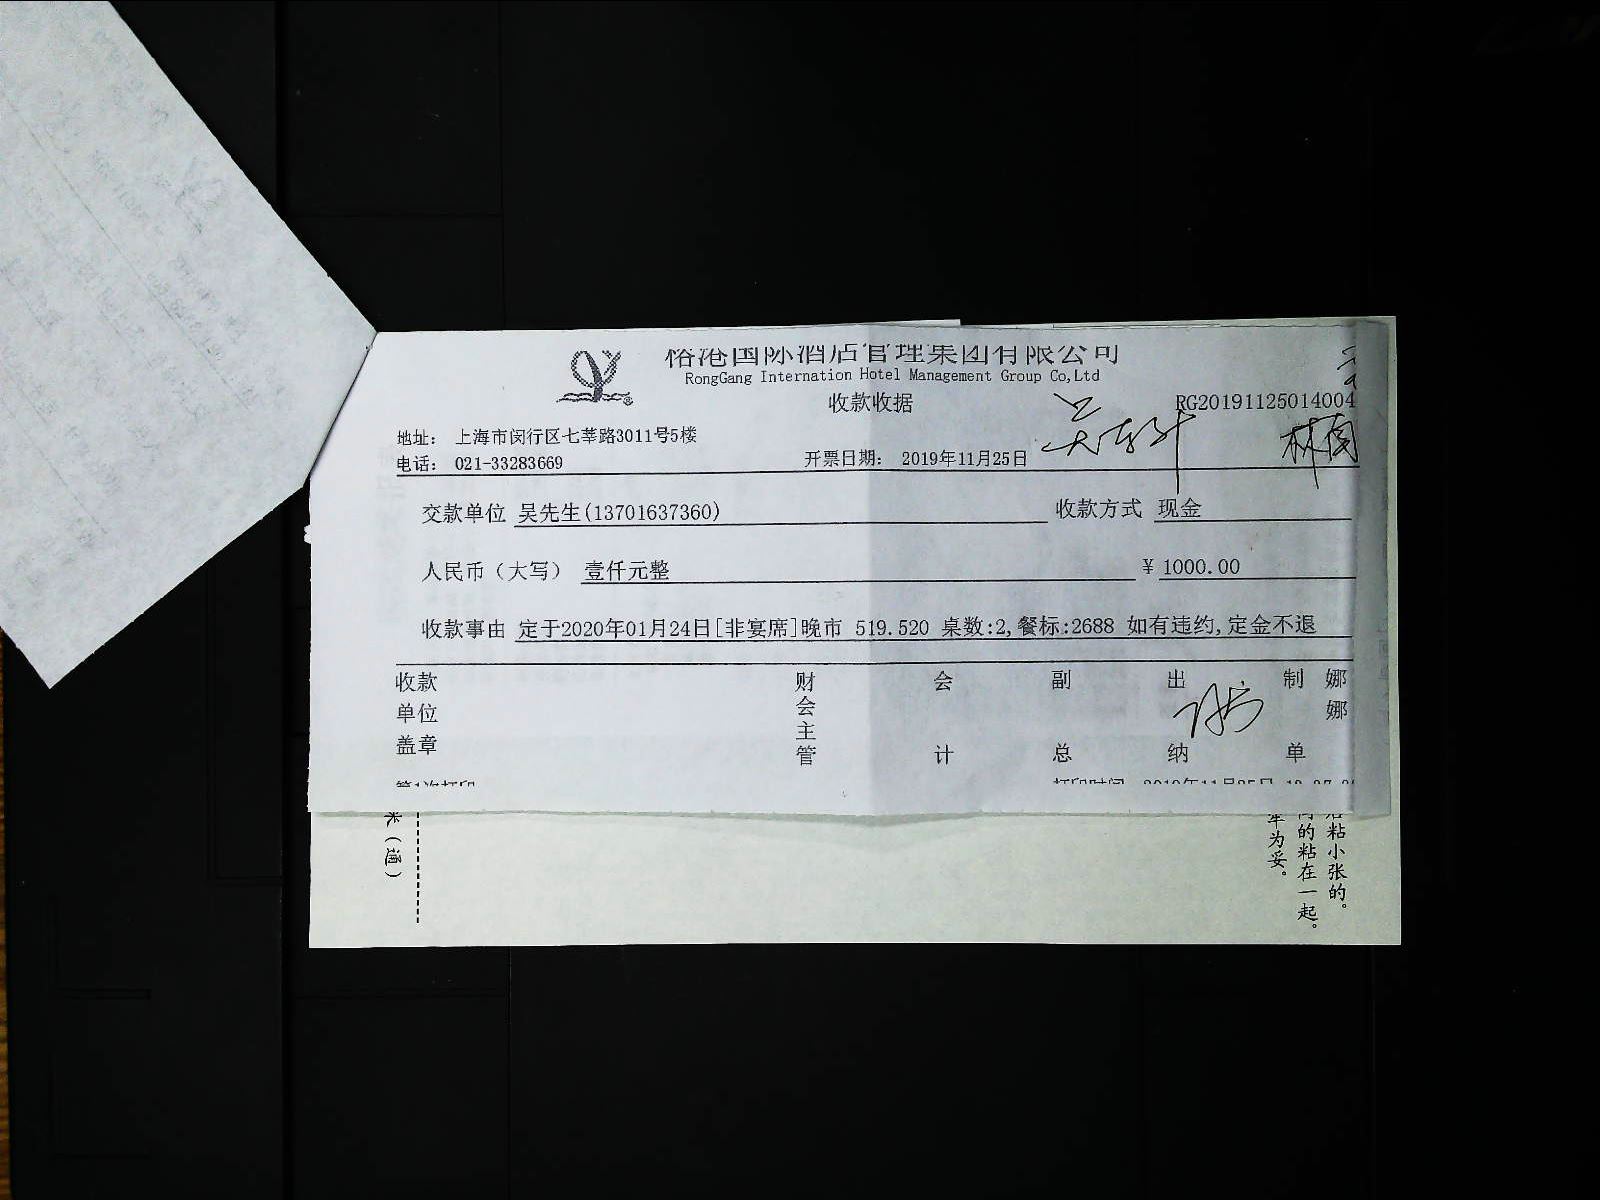 裕港国际酒店管理集团有限公司
RongGang Internation Hotel Management Group Co,Ltd
收款收据
RG20191125014004
地址： 上海市闵行区七莘路3011号5楼
电话： 021-33283669
开票日期： 2019年11月25日
交款单位 吴先生(13701637360)
收款方式 现金
人民币（大写） 壹仟元整
¥ 1000.00
收款事由 定于2020年01月24日[非宴席]晚市 519.520 桌数:2,餐标:2688 如有违约,定金不退
收款单位盖章
财会主管
会计
副总
出纳
制单
娜娜
第1次打印
打印时间 2019年11月25日
（通）
后粘小张的。
的粘在一起。
牢为妥。